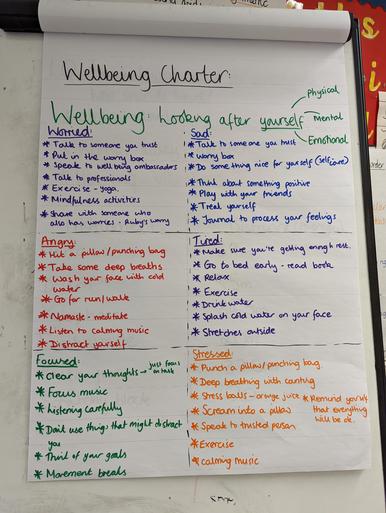 Wellbeing Charter:
Wellbeing: Looking after yourself
Physical
Mental
Emotional
Worried:
* Talk to someone you trust
* Put in the worry box
* Speak to wellbeing ambassadors
* Talk to professionals
* Exercise - yoga.
* Mindfulness activities
* Share with someone who
also has worries - Ruby's worry
Sad:
* Talk to someone you trust
* worry box
* Do something nice for yourself (self care)
* Think about something positive
* Play with your friends
* Treat yourself
* Journal to process your feelings
Angry:
* Hit a pillow/punching bag
* Take some deep breaths
* Wash your face with cold
water
* Go for run/walk
* Namaste - meditate
* Listen to calming music
* Distract yourself
Tired:
* Make sure you're getting enough rest.
* Go to bed early - read book
* Relax
* Exercise
* Drink water
* Splash cold water on your face
* Stretches outside
Focused:
* Clear your thoughts → just focus
on task
* Focus music
* Listening carefully
* Don't use things that might distract
you
* Think of your goals
* Movement breaks
Stressed:
* Punch a pillow/punching bag
* Deep breathing with counting
* Stress balls - orange juice
* Scream into a pillow
* Speak to trusted person
* Exercise
* calming music
* Remind yourself
that everything
will be ok.